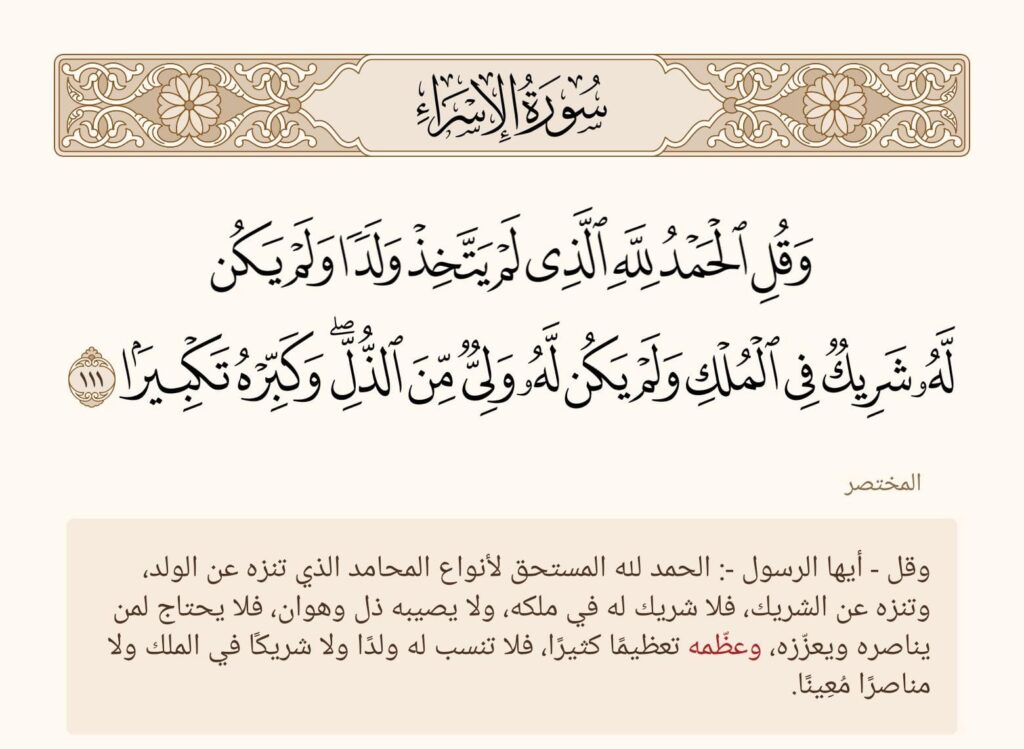 سُورَةُ الإِسْرَاءِ
وَقُلِ ٱلْحَمْدُ لِلَّهِ ٱلَّذِى لَمْ يَتَّخِذْ وَلَدًۭا وَلَمْ يَكُن
لَّهُۥ شَرِيكٌۭ فِى ٱلْمُلْكِ وَلَمْ يَكُن لَّهُۥ وَلِىٌّۭ مِّنَ ٱلذُّلِّ ۖ وَكَبِّرْهُ تَكْبِيرًۢا ١١١
المختصر
وقل - أيها الرسول -: الحمد لله المستحق لأنواع المحامد الذي تنزه عن الولد،
وتنزه عن الشريك، فلا شريك له في ملكه، ولا يصيبه ذل وهوان، فلا يحتاج لمن
يناصره ويعزّزه، وعظّمه تعظيمًا كثيرًا، فلا تنسب له ولدًا ولا شريكًا في الملك ولا
مناصرًا مُعِينًا.